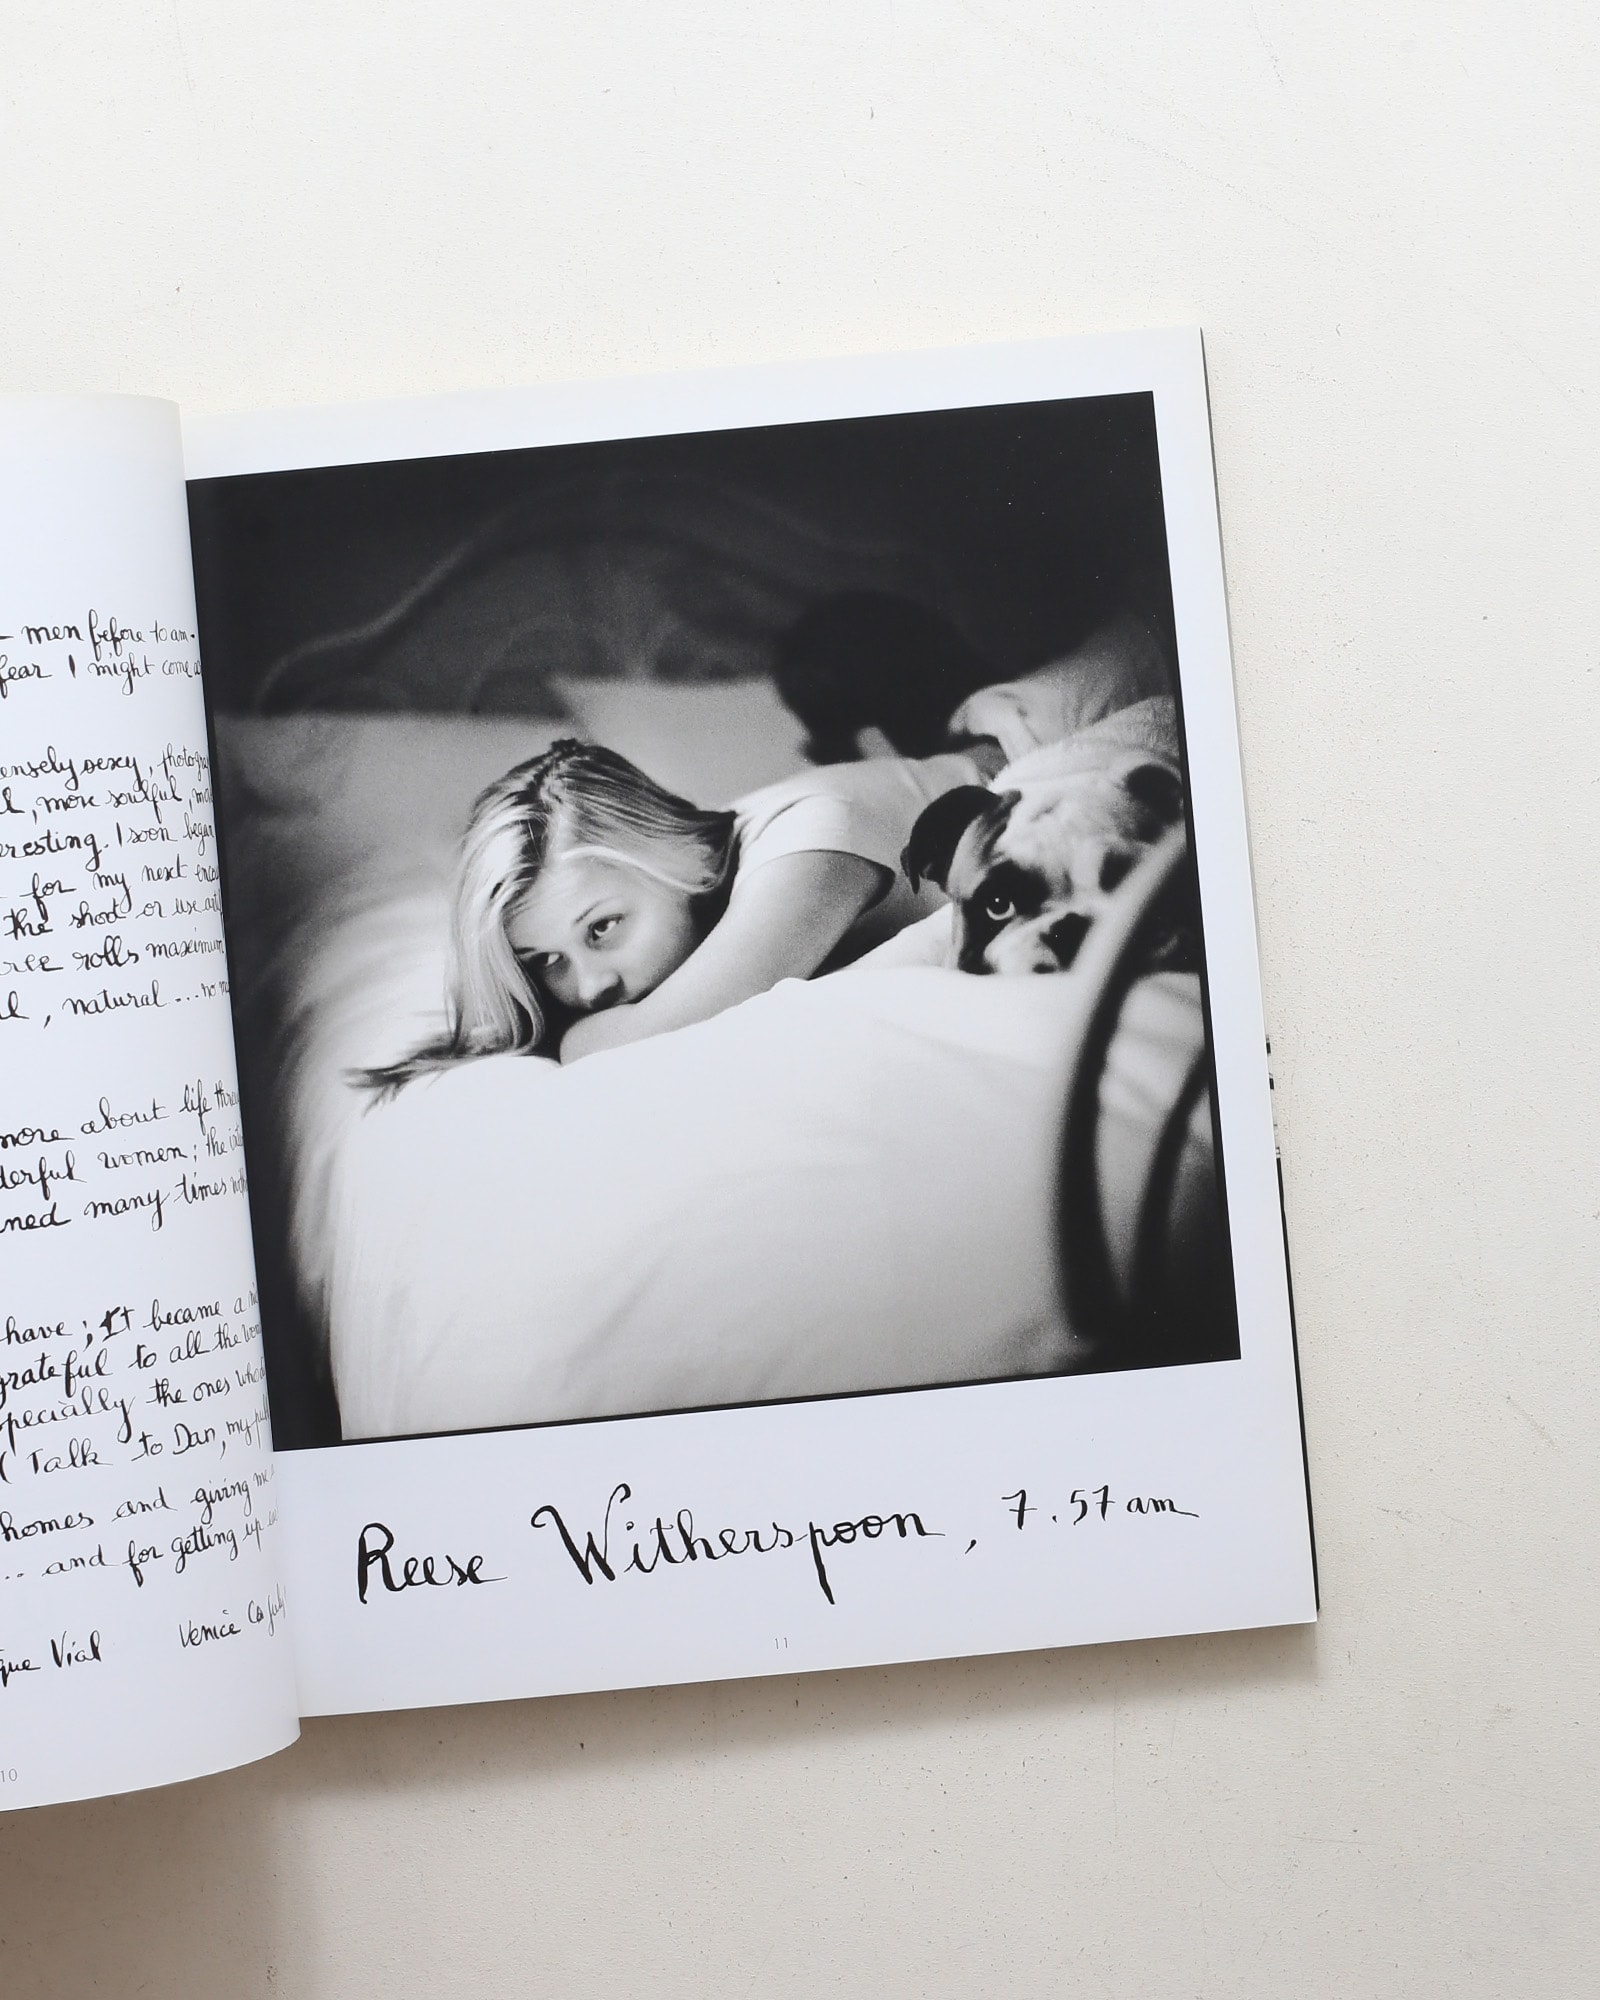 men before 10 am.
fear I might come
ensely sexy,
more soulful,
eresting. I soon began
for my next
the shoot or use
ree rolls maximum
l, natural ... no
more about life
derful women; the
ned many times
have; It became a
grateful to all the
specially the ones who
( Talk to Dan, my
homes and giving me
... and for getting up
que Vial Venice Ca July
10
Reese Witherspoon, 7.57 am
11